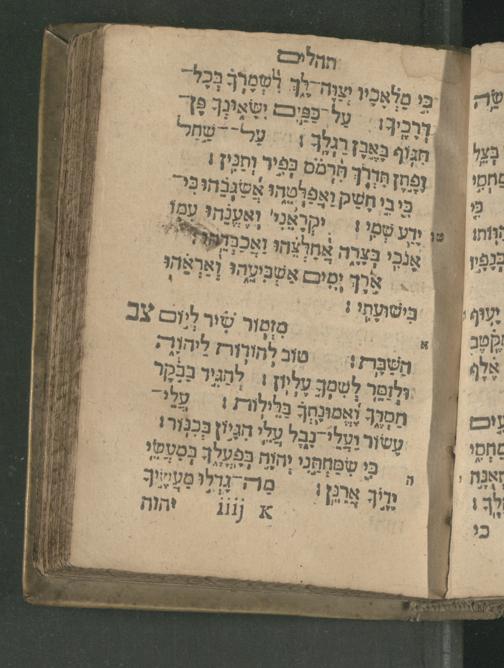 תהלים
כִּי מַלְאָכָיו יְצַוֶּה־לָּךְ לִשְׁמָרְךָ בְּכָל־
דְּרָכֶיךָ׃ עַל־כַּפַּיִם יִשָּׂאוּנְךָ פֶּן־
תִּגּוֹף בָּאֶבֶן רַגְלֶךָ׃ עַל־שַׁחַל
וָפֶתֶן תִּדְרֹךְ תִּרְמֹס כְּפִיר וְתַנִּין׃
כִּי בִי חָשַׁק וַאֲפַלְּטֵהוּ אֲשַׂגְּבֵהוּ כִּי־
יָדַע שְׁמִי׃ יִקְרָאֵנִי וְאֶעֱנֵהוּ עִמּוֹ
טו
אָנֹכִי בְצָרָה אֲחַלְּצֵהוּ וַאֲכַבְּדֵהוּ׃
אֹרֶךְ יָמִים אַשְׂבִּיעֵהוּ וְאַרְאֵהוּ
בִּישׁוּעָתִי׃
מִזְמוֹר שִׁיר לְיוֹם צב
א
הַשַּׁבָּת׃ טוֹב לְהוֹדוֹת לַיהוָה
וּלְזַמֵּר לְשִׁמְךָ עֶלְיוֹן׃ לְהַגִּיד בַּבֹּקֶר
חַסְדֶּךָ וֶאֱמוּנָתְךָ בַּלֵּילוֹת׃ עֲלֵי־
עָשׂוֹר וַעֲלֵי־נָבֶל עֲלֵי הִגָּיוֹן בְּכִנּוֹר׃
כִּי שִׂמַּחְתַּנִי יְהוָה בְּפָעֳלֶךָ בְּמַעֲשֵׂי
ה
יָדֶיךָ אֲרַנֵּן׃ מַה־גָּדְלוּ מַעֲשֶׂיךָ
K iiij יהוה
כי